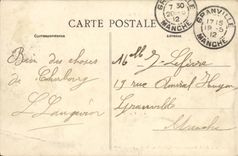 CARTE POSTALE
Correspondance
Bien des choses
de Cherbourg
L Langevin
GRANVILLE
7 30
20 - 5
12
MANCHE
GRANVILLE
17 15
19 - 5
12
MANCHE
Mlle G. Lefèvre
19 rue Amiral
Granville
Manche